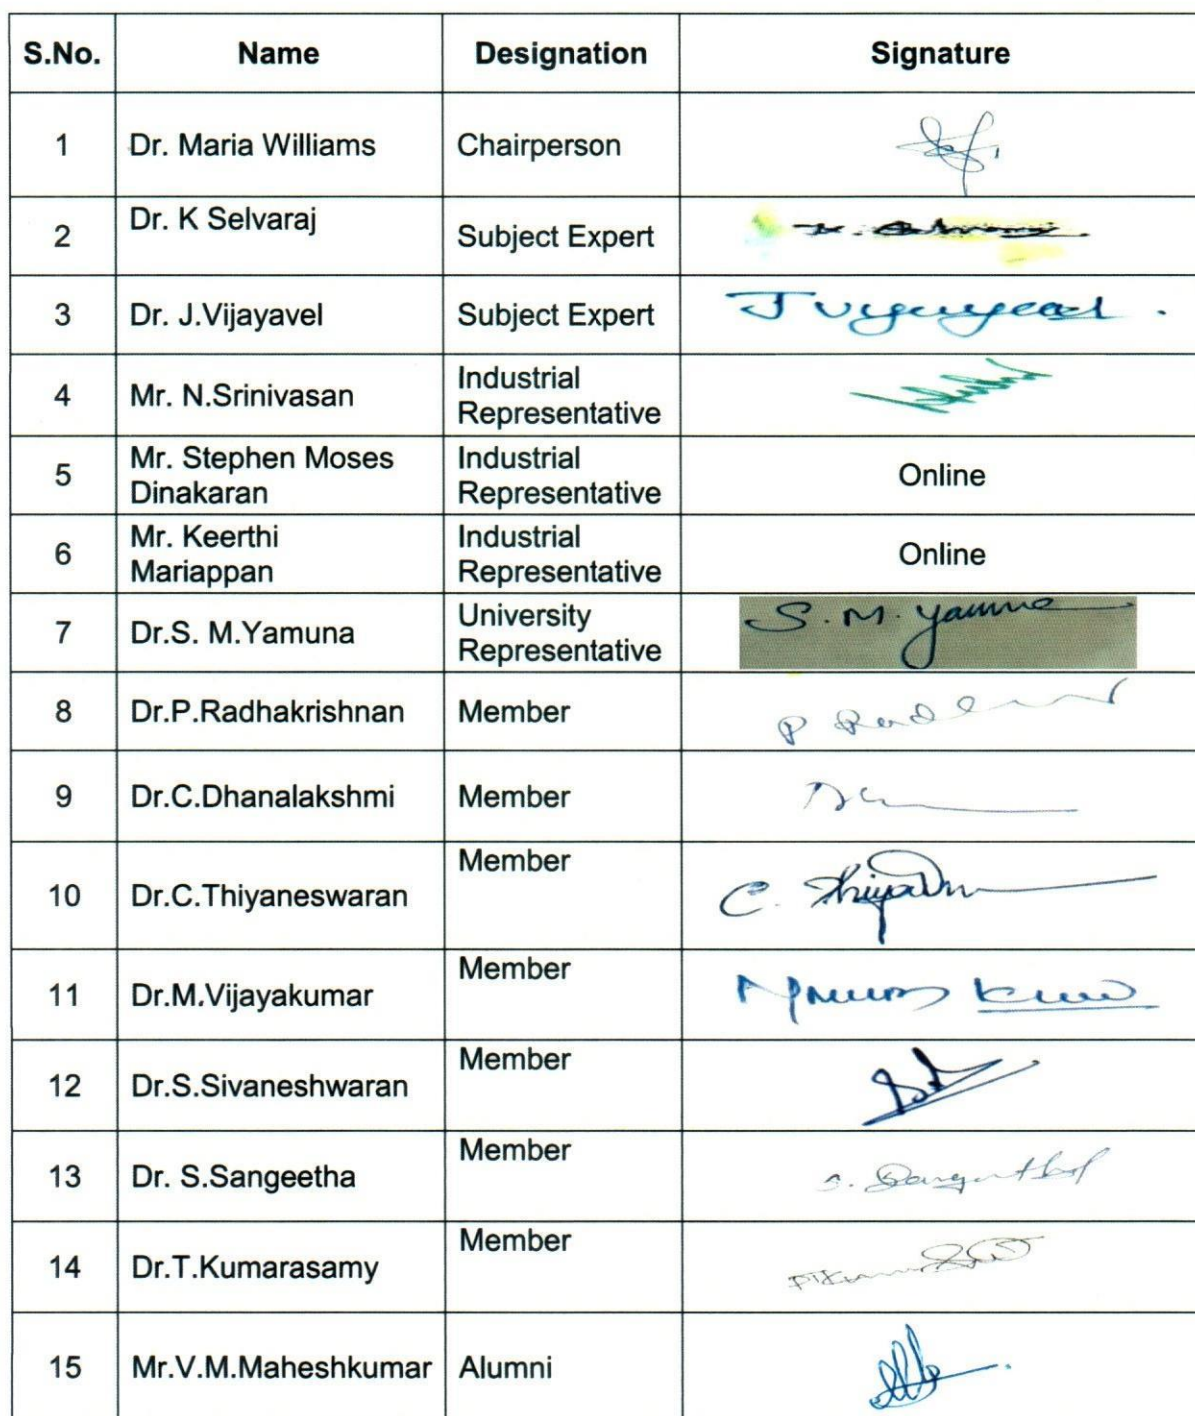 S.No. Name Designation Signature
1 Dr. Maria Williams Chairperson
2 Dr. K Selvaraj Subject Expert
3 Dr. J.Vijayavel Subject Expert J Vijayavel .
4 Mr. N.Srinivasan Industrial
Representative
5 Mr. Stephen Moses
Dinakaran Industrial
Representative Online
6 Mr. Keerthi
Mariappan Industrial
Representative Online
7 Dr.S. M.Yamuna University
Representative S. M. Yamuna
8 Dr.P.Radhakrishnan Member
9 Dr.C.Dhanalakshmi Member
10 Dr.C.Thiyaneswaran Member
11 Dr.M.Vijayakumar Member
12 Dr.S.Sivaneshwaran Member
13 Dr. S.Sangeetha Member S. Sangeetha
14 Dr.T.Kumarasamy Member
15 Mr.V.M.Maheshkumar Alumni